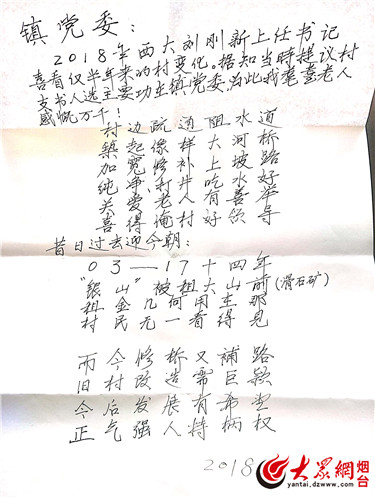 镇党委:
2018年西大刘刚新上任书记
喜看仅半年来的村变化。据知当时提议村
支书人选主要功在镇党委,为此我耄耋老人
感慨万千!
村边疏通阻水道
築起像样大河桥
加宽修补上坡路
纯净村井吃水好
关爱老人有善举
喜得俺村好领导
昔日过去迎今朝:
03—17十四年
"银山"被租大山前(滑石矿)
租金几何用在那
村民无一看得见
而今修桥又補路
旧村改造需巨款
今后发展有希望
正气强人持柄权
2018
大众網 烟台
yantai.dzwww.com